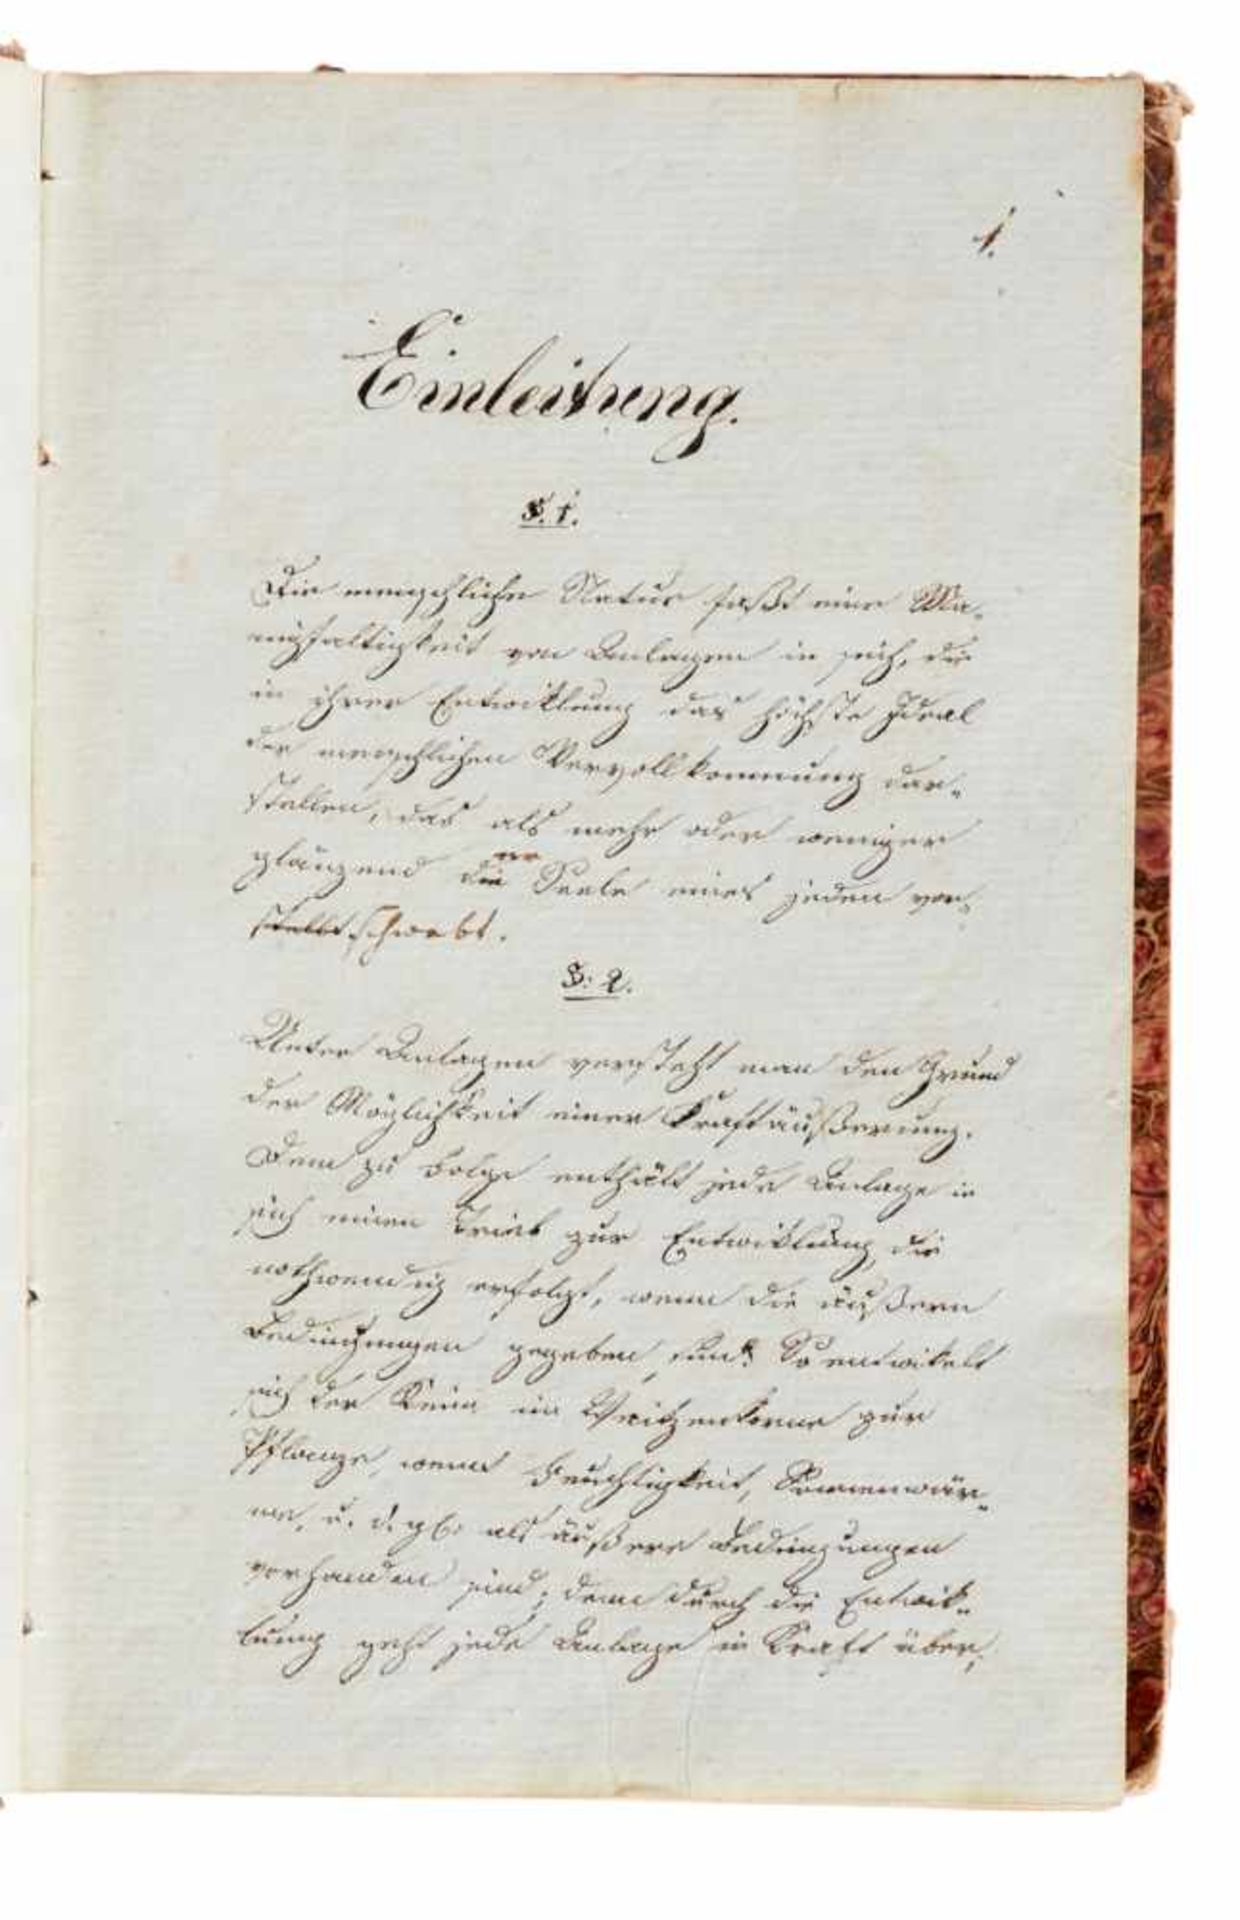 1.
Einleitung.
§. 1.
Die menschliche Natur faßt eine Ma-
nigfaltigkeit von Anlagen in sich, die
in ihrer Entwicklung das höchste Ideal
der menschlichen Vervollkommnung dar-
stellen, das als mehr oder weniger
glänzend die er Seele eines jeden vor-
stellt schwebt.
§: 2.
Unter Anlagen versteht man den Grund
der Möglichkeit einer Kraftäußerung.
Dem zu Folge enthält jede Anlage in
sich einen Trieb zur Entwicklung, die
nothwendig erfolgt, wenn die äußern
Bedingungen gegeben sind. So entwikelt
sich der Keim im Weitzenkorne zur
Pflanze, wenn Feuchtigkeit, Sonnenwär-
me, u. d. gl: als äußere Bedingungen
vorhanden sind; denn durch die Entwik-
lung geht jede Anlage in Kraft über,